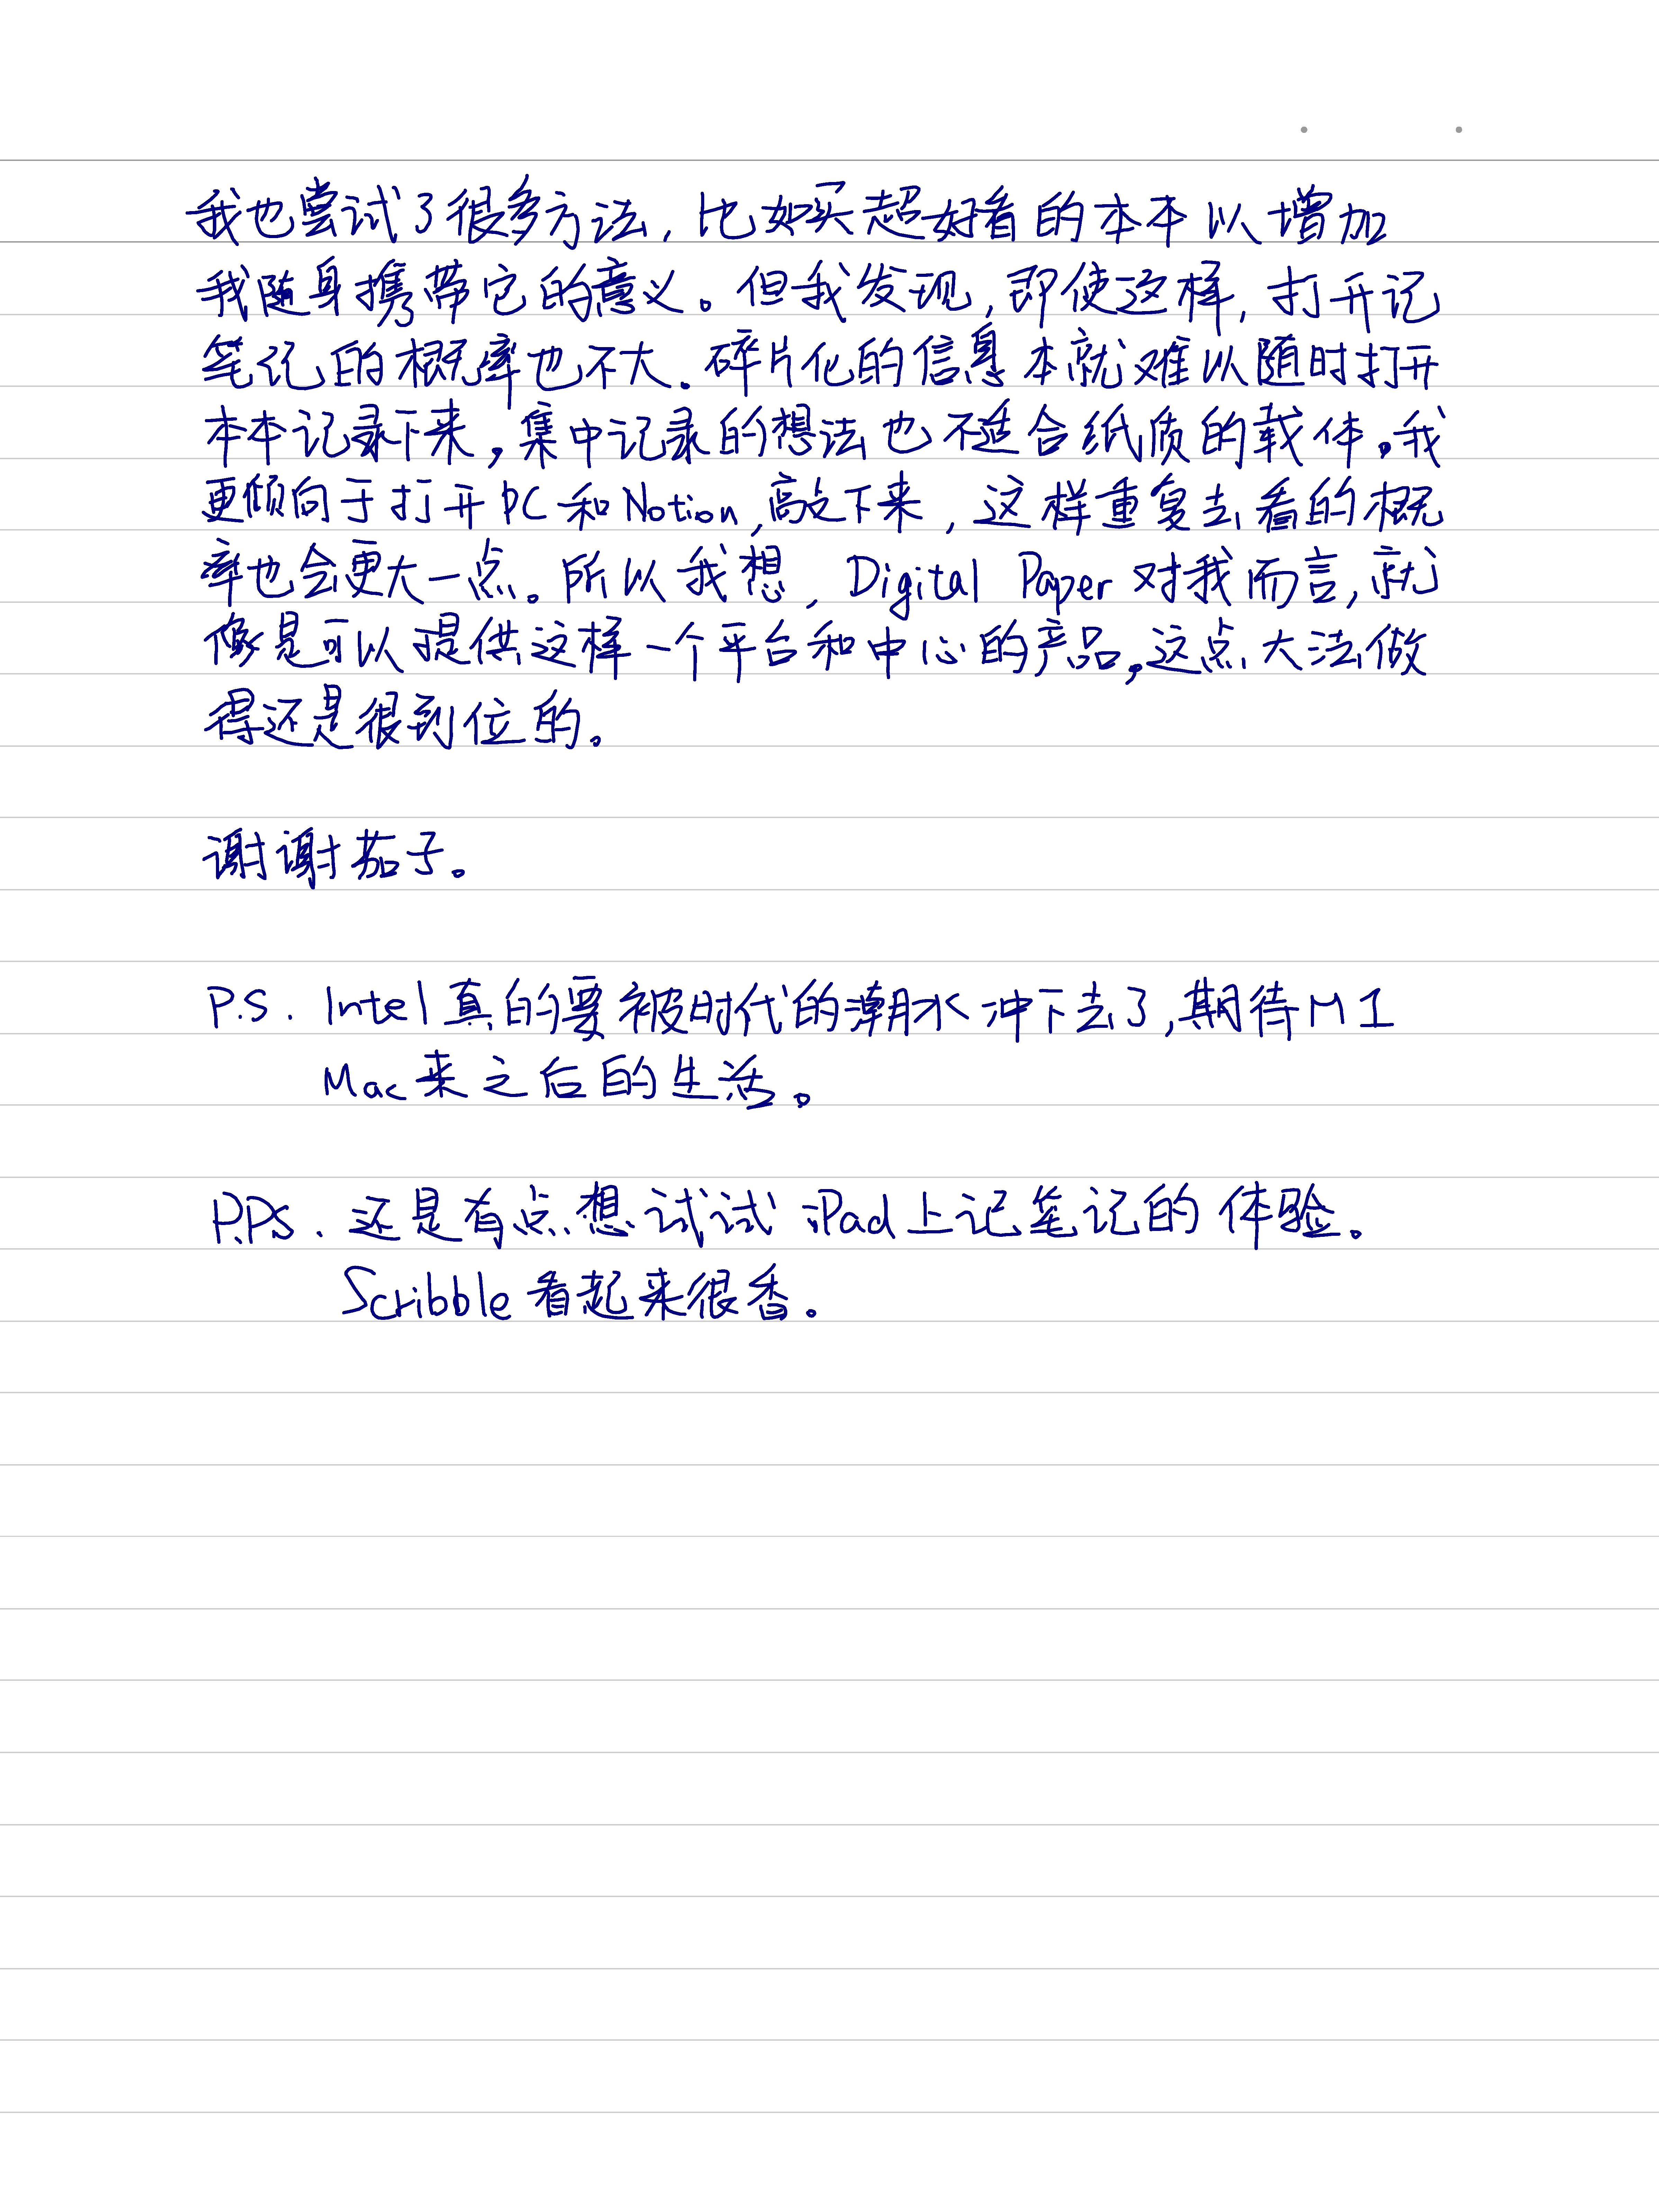 我也尝试了很多方法, 比如买超好看的本本以增加
我随身携带它的意义。但我发现, 即使这样, 打开记
笔记的概率也不大。碎片化的信息本就难以随时打开
本本记录下来,集中记录的想法也不适合纸质的载体。我
更倾向于打开PC和Notion,敲下来, 这样重复去看的概
率也会更大一点。所以我想, Digital Paper对我而言, 就
像是可以提供这样一个平台和中心的产品,这点大法做
得还是很到位的。
谢谢茄子。
P.S. Intel真的要被时代的潮水冲下去了, 期待M1
Mac来之后的生活。
P.P.S. 还是有点想试试iPad上记笔记的体验。
Scribble看起来很香。